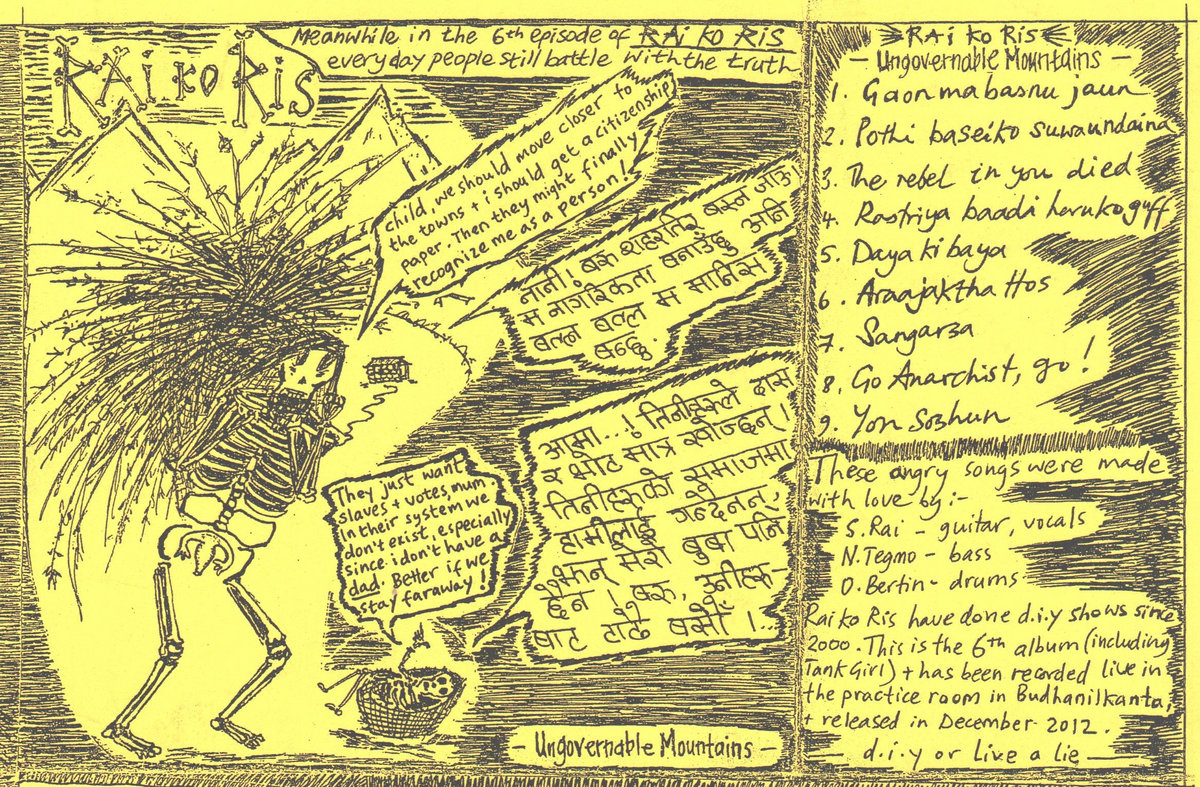 RAi KO RiS
Meanwhile in the 6th episode of RAi KO RiS
everyday people still battle with the truth
child, we should move closer to
the towns + i should get a citizenship
paper. Then they might finally
recognize me as a person!
नानी! बरु शहरतिर बस्न जाऔं!
म नागरिकता बनाउँछु अनि
बल्ल बल्ल म मानिस
बन्छु.
They just want
slaves + votes, mum.
In their system we
don't exist, especially
since i don't have a
dad. Better if we
stay faraway!
आमा...! तिनीहरूले दास
र भोट मात्र खोज्छन्।
तिनीहरूको समाजमा
हामीलाई गन्दैनन्,
झन् मेरो बुबा पनि
छैन। बरु, उनीहरू-
बाट टाढै बसौं।...
- Ungovernable Mountains -
RAi KO RiS
- Ungovernable Mountains -
1. Gaon ma basnu jaun
2. Pothi baseiko suwaundaina
3. The rebel in you died
4. Rastriya baadi heruko guff
5. Daya ki baya
6. Araajaktha Hos
7. Sangarsa
8. Go Anarchist, go!
9. Yon Sozhun
These angry songs were made
with love by:-
S.Rai - guitar, vocals
N.Tegmo - bass
O.Bertin - drums
Rai ko Ris have done d.i.y shows since
2000. This is the 6th album (including
Tank Girl) + has been recorded live in
the practice room in Budhanilkanta,
+ released in December 2012.
— d.i.y or Live a lie —